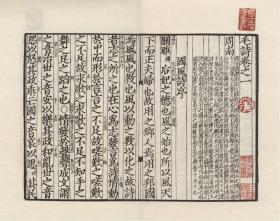 毛詩卷之一
周南
國風 詩序
關雎后妃之德也風之始也所以風天
下而正夫婦也故用之鄉人焉用之邦國
焉風風也教也風以動之教以化之故詩
者志之所之也在心為志發言為詩情動
於中而形於言言之不足故嗟歎之嗟歎
之不足故永歌之永歌之不足不知手之
舞之足之蹈之也情發於聲聲成文謂
之音治世之音安以樂其政和亂世之音
怨以怒其政乖亡國之音哀以思其民